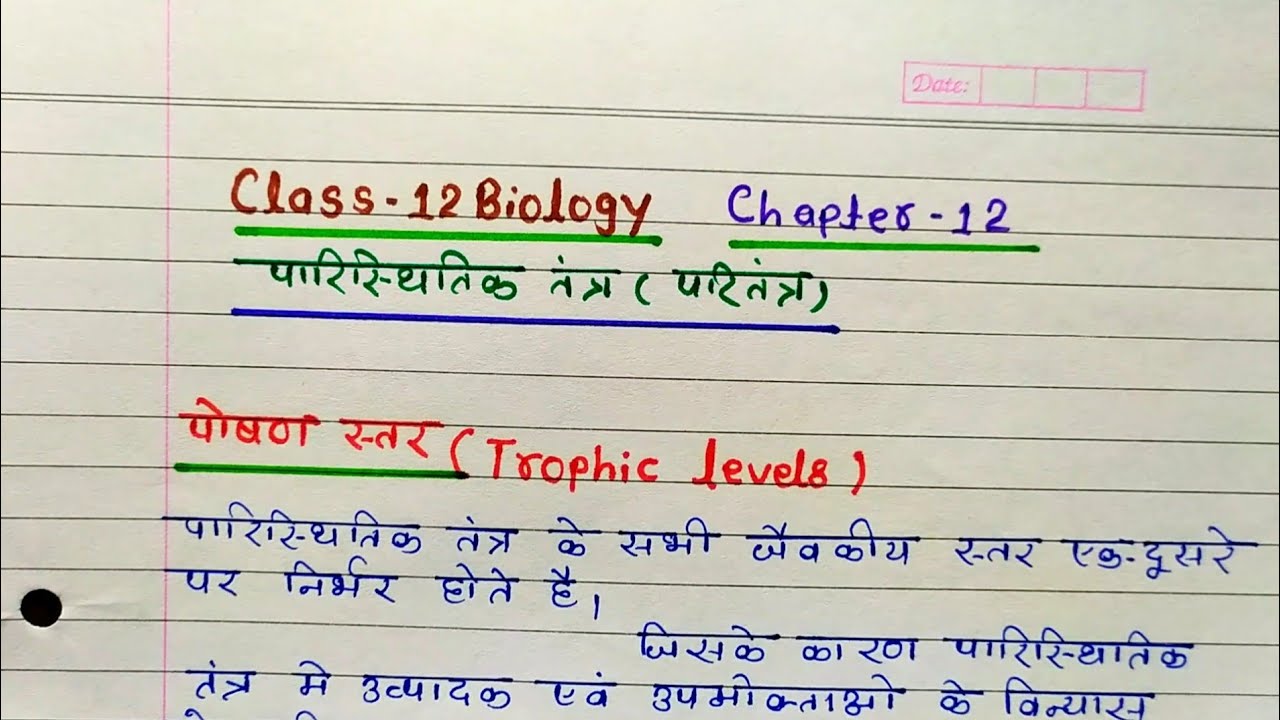 Date:
Class-12 Biology Chapter-12
पारिस्थितिक तंत्र ( परितंत्र)
पोषण स्तर ( Trophic levels )
पारिस्थितिक तंत्र के सभी जैवकीय स्तर एक-दूसरे
पर निर्भर होते है।
जिसके कारण पारिस्थितिक
तंत्र मे उत्पादक एवं उपभोक्ताओ के विन्यास